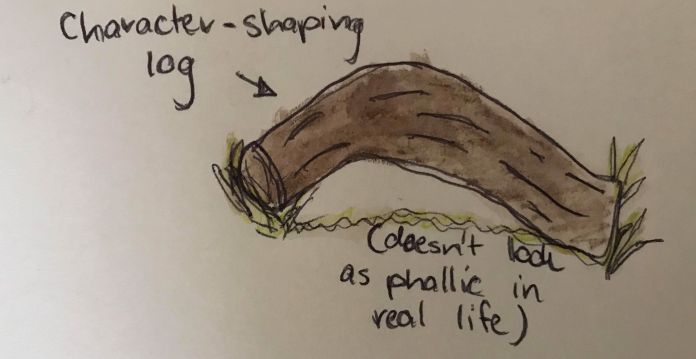 Character-shaping
log
(doesn't look
as phallic in
real life)